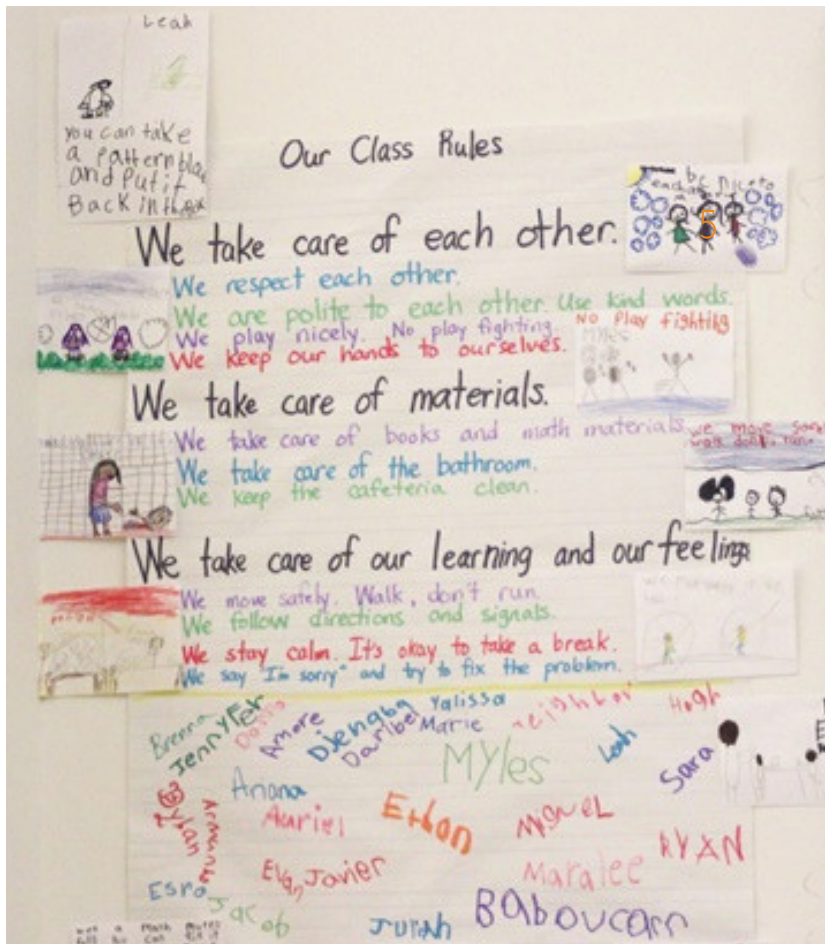 Leah
you can take
a pattern
and put it
Back in the
Our Class Rules
be nice to
We take care of each other.
We respect each other.
We are polite to each other. Use kind words.
We play nicely. No play fighting.
We keep our hands to ourselves.
No Play fighting
MYles
5
We take care of materials.
We take care of books and math materials
we move
walk don't run.
We take care of the bathroom.
We keep the cafeteria clean.
We take care of our learning and our feelings
We move safely. Walk, don't run.
We follow directions and signals.
We stay calm. It's okay to take a break.
We say "I'm sorry" and try to fix the problem.
Brenna
Jennyfer
Amore
Djenaba
Daribel
Yalissa
Marie
Hugh
Leah
MYles
Sara
Anana
Dylan
Auriel
Ethan
MIGUEL
RYAN
Evan
Javier
Maralee
Esro
Jacob
Juriah
Baboucarr